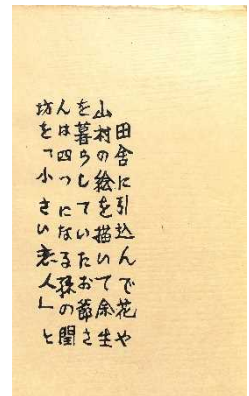 田舎に引込んで花や
山村の絵を描いて余生
を暮らしていたお爺さ
んは四つになる孫の閏
坊を「小さい恋人」と